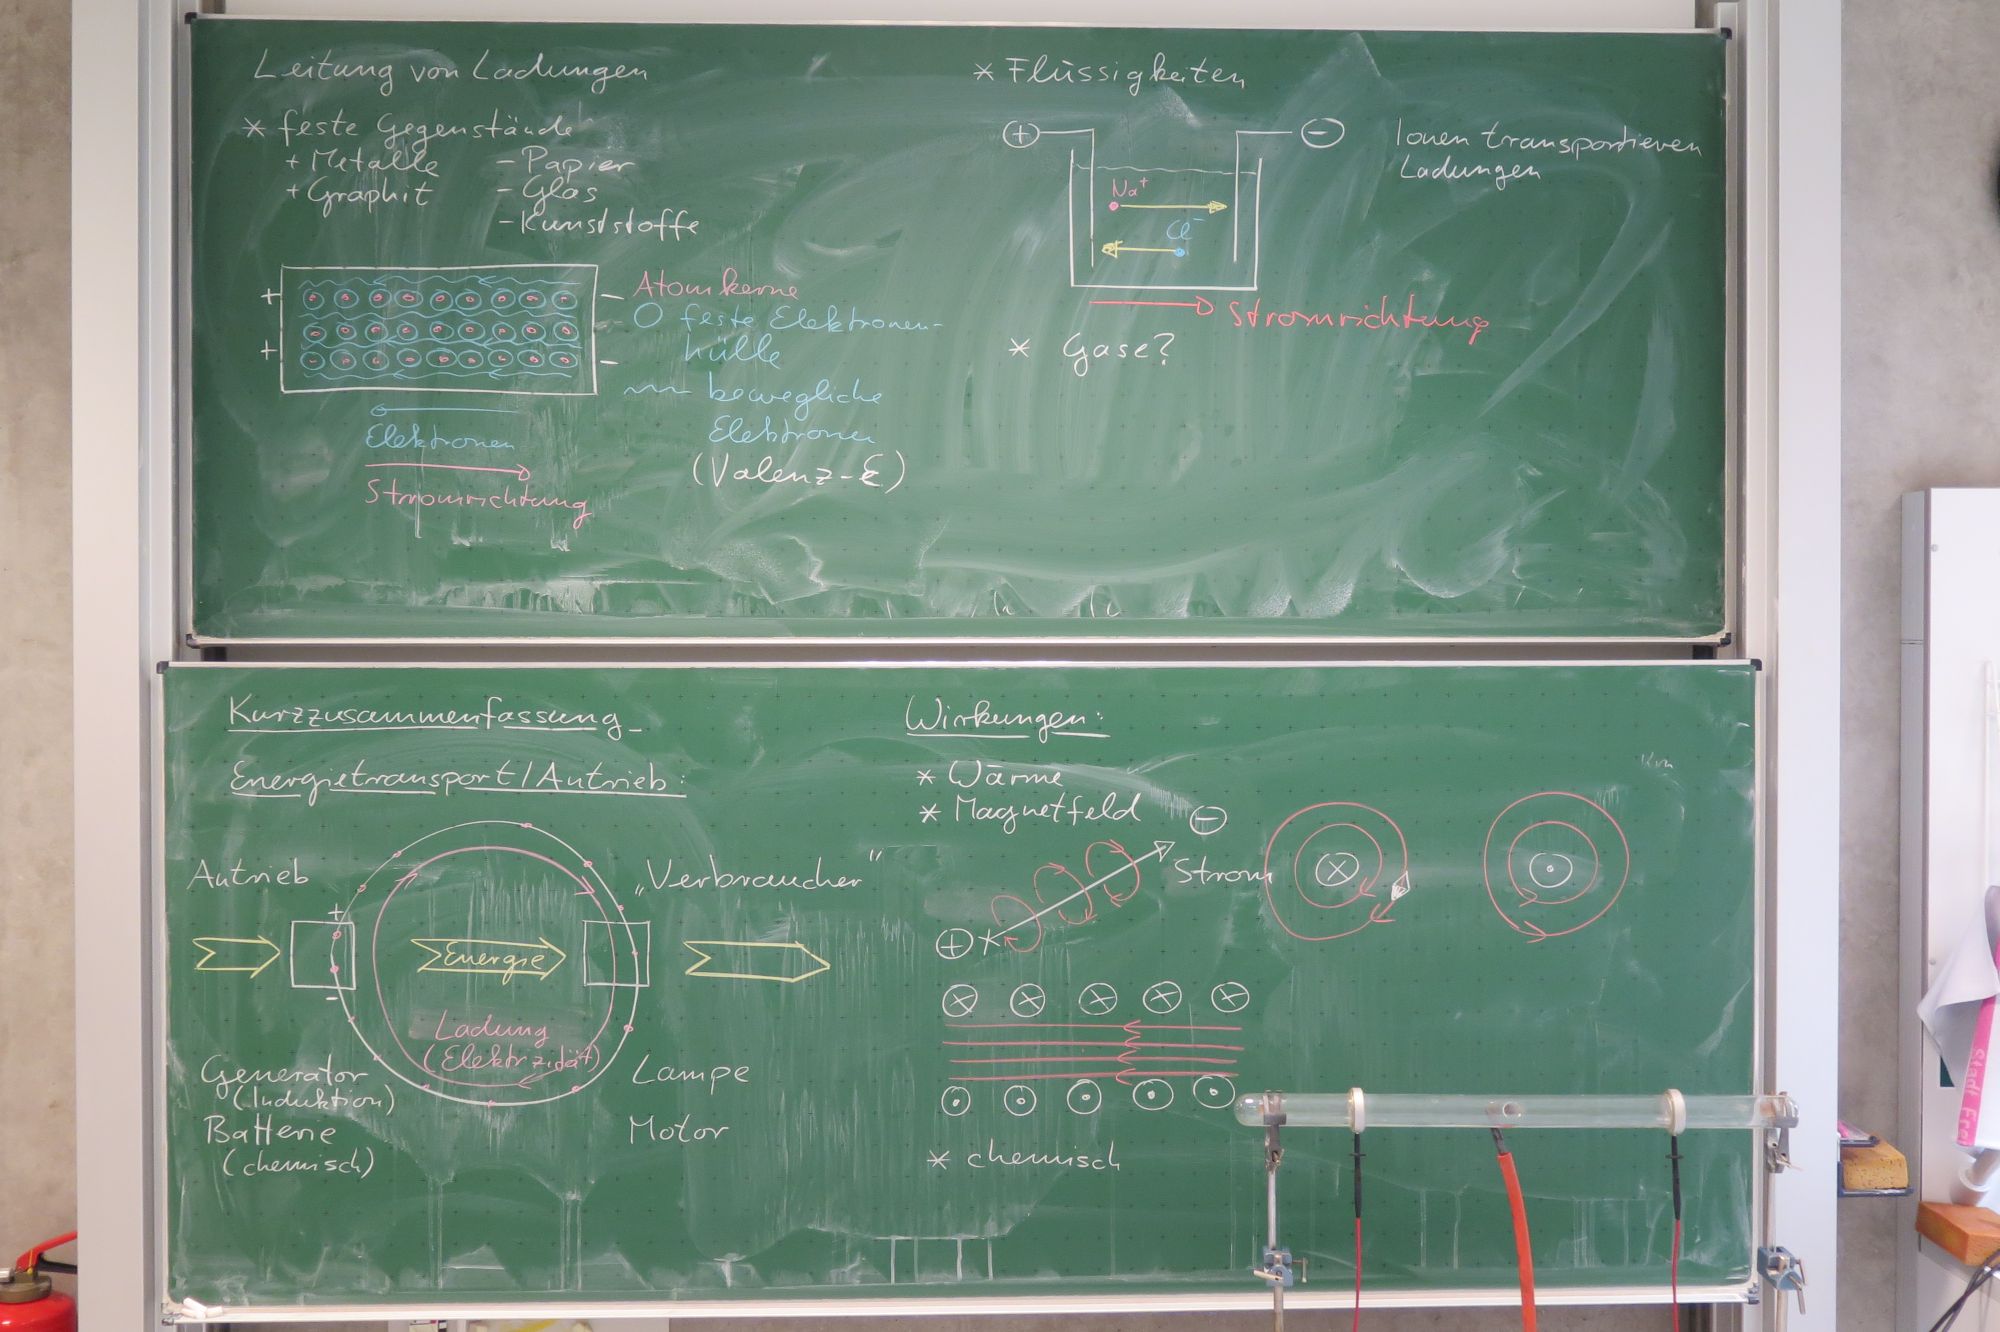 Leitung von Ladungen
* feste Gegenstände
+ Metalle - Papier
+ Graphit - Glas
- Kunststoffe
+ -
+ -
Atomkerne
O feste Elektronen-
hülle
bewegliche
Elektronen
(Valenz-E)
Elektronen
Stromrichtung
* Flüssigkeiten
+ -
Ionen transportieren
Ladungen
Na+
Cl-
Stromrichtung
* Gase?
Kurzzusammenfassung
Energietransport/Antrieb:
Antrieb
„Verbraucher"
+
-
Energie
Ladung
(Elektrzität)
Generator
(Induktion)
Batterie
(chemisch)
Lampe
Motor
Wirkungen:
* Wärme
* Magnetfeld
-
Strom
+
* chemisch